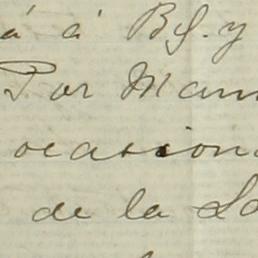 á á BS. y
Por Man
ocasion
de la